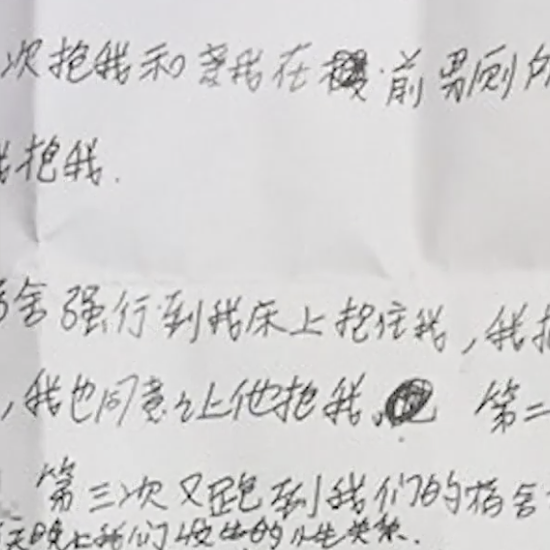 次抱我和亲我在前男厕所
我抱我.
宿舍强行到我床上抱住我,我
,我也同意让他抱我 第二
第三次又跑到我们的宿舍
天晚上我们